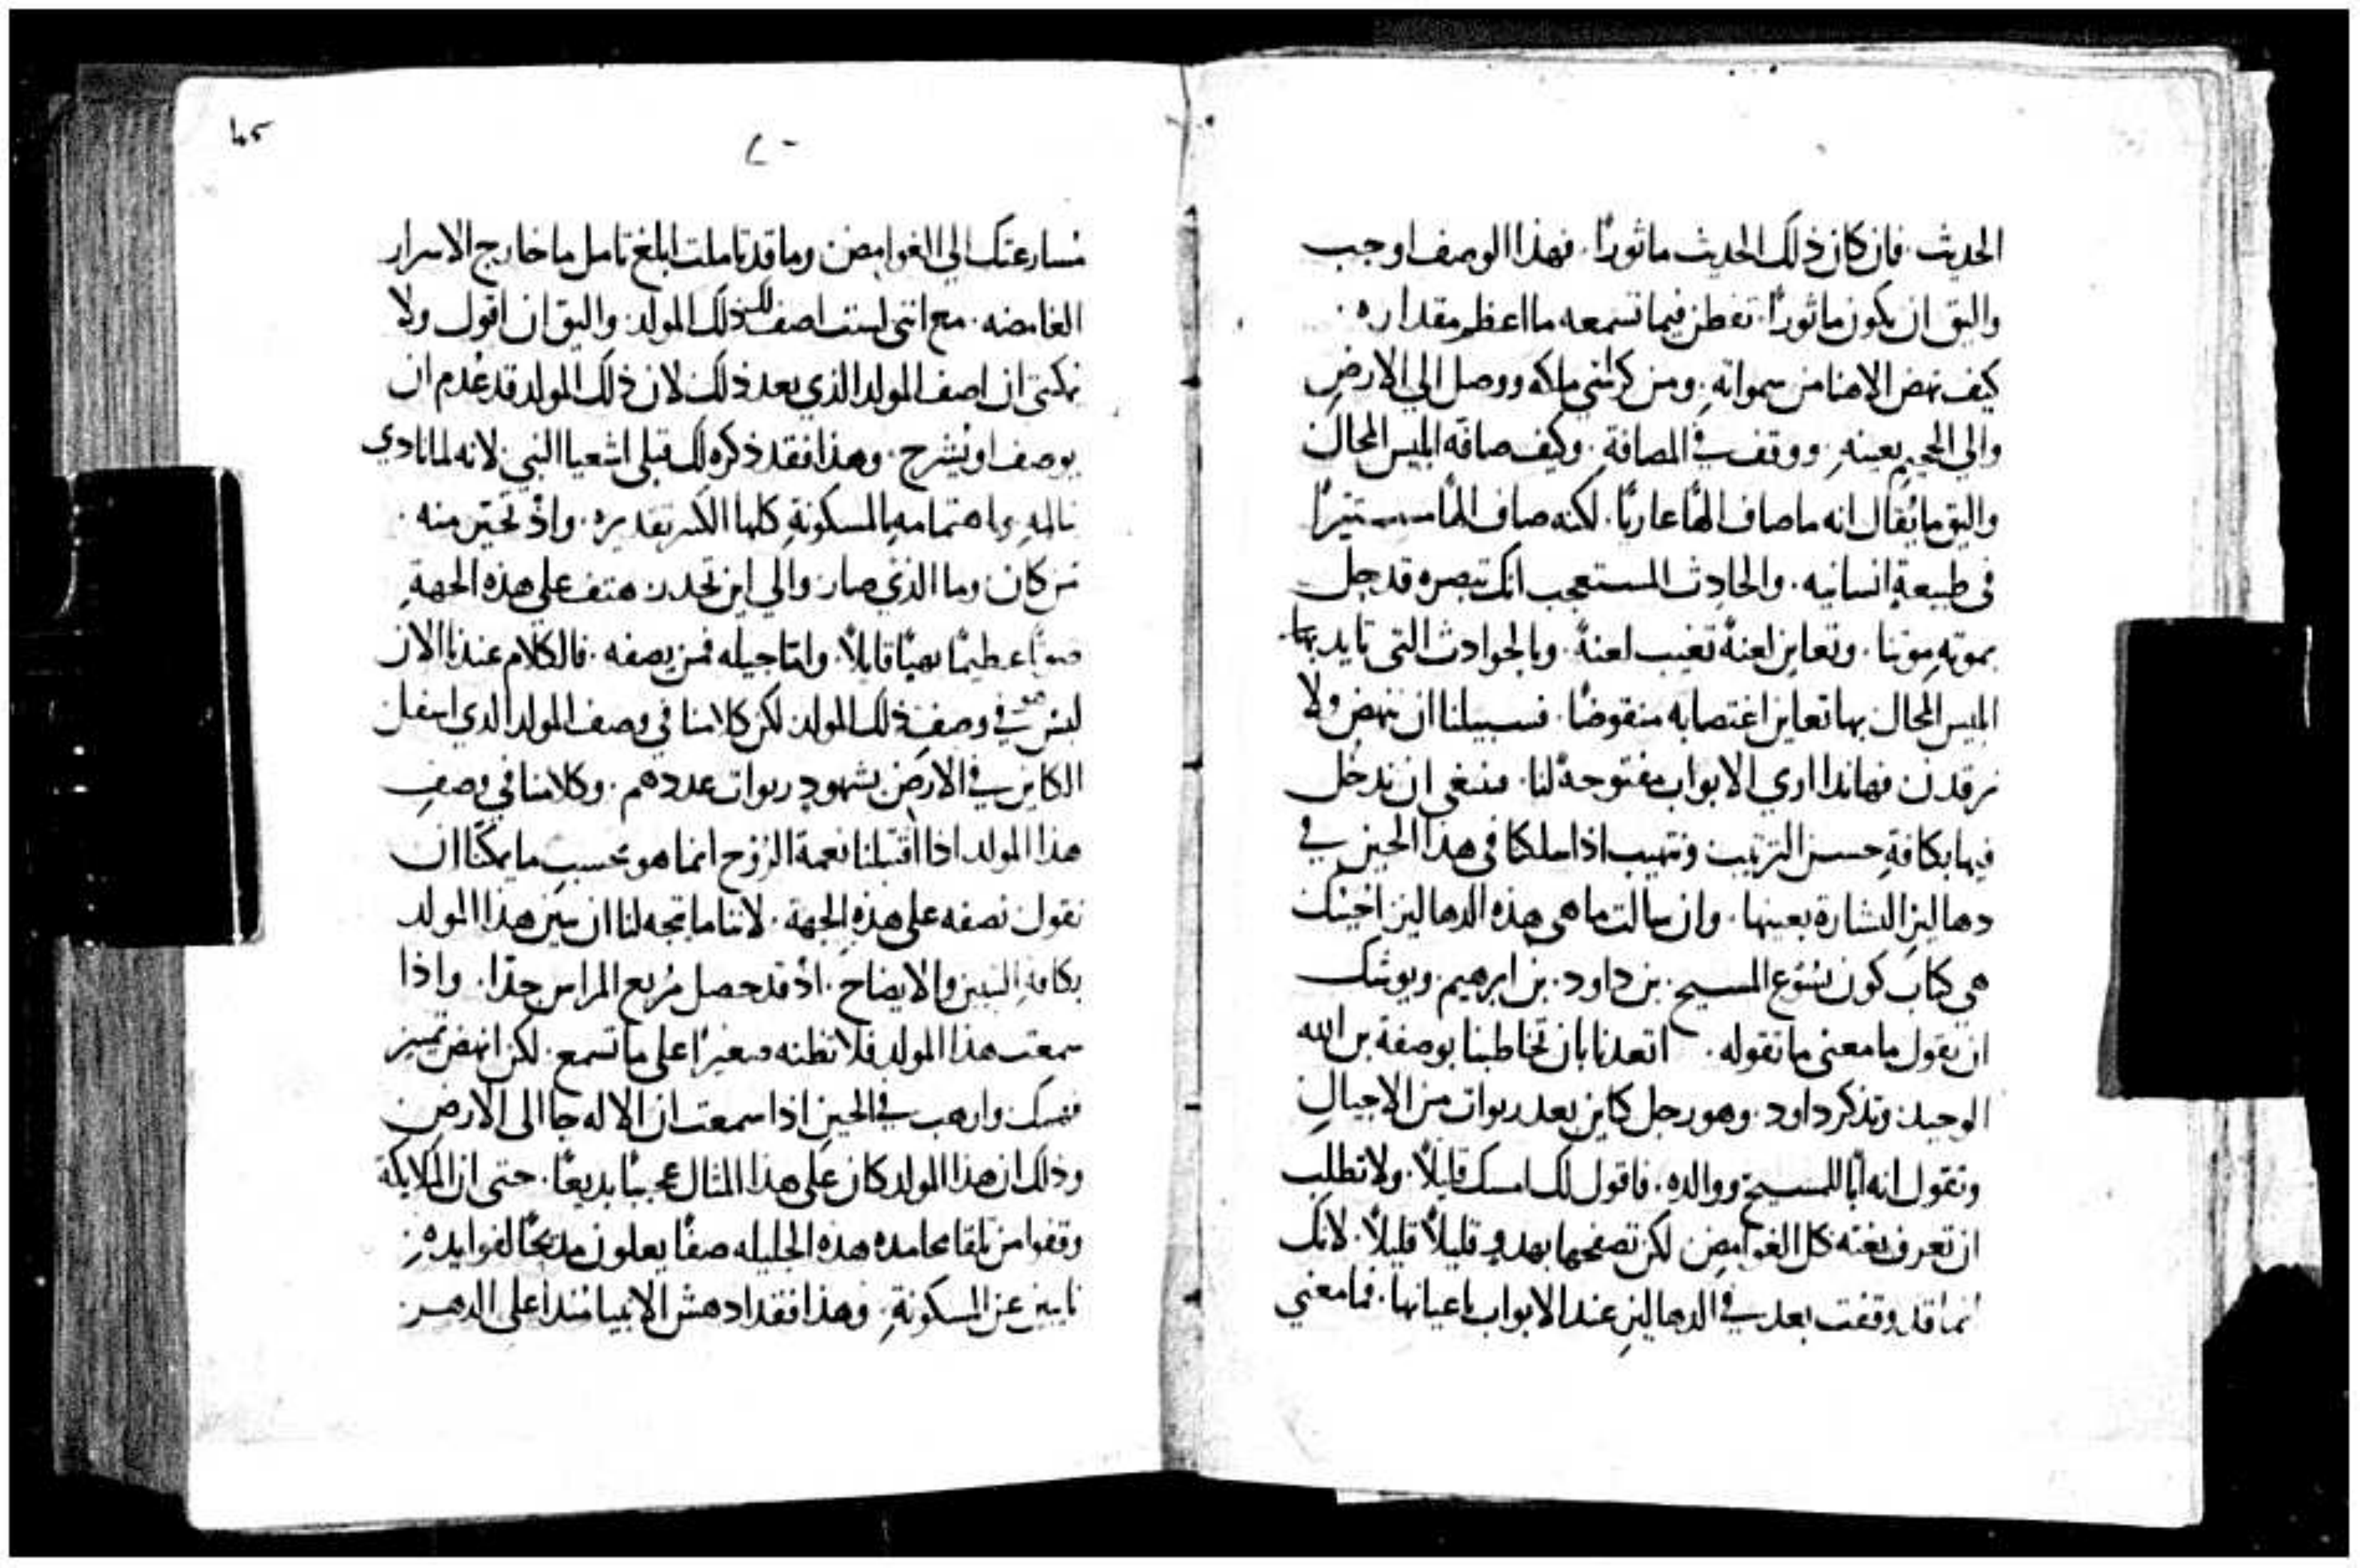 الحديث. فان كان ذلك الحديث ماثورًا. فهذا الوصف اوجب
واليق ان يكون ماثورًا. تفطن فيما تسمعه ما اعظم مقداره.
كيف نهض الاهنا من سمواته. ومن كراسي ملكه ووصل الي الارض
والي الجحيم بعينه. ووقف في المصافة. وكيف صافه ابليس المحال
واليق ما يُقال انه ما صاف الهًا عاريًا. لكنه صاف الهًا مستترًا
في طبيعةٍ انسانيه. والحادث المستعجب انك تبصره قد حل
بموته موتنا. وتعاين لعنةً تغيب لعنة. وبالحوادث التي تايد بها
ابليس المحال بها تعاين اغتصابه منقوضًا. فسبيلنا ان ننهض ولا
نرقدن فهانذا اري الابواب مفتوحةً لنا. فينبغي ان ندخل
فيها بكافةِ حسن الترتيب وتهيب اذا سلكنا في هذا الحين في
دهاليز البشارة بعينها. وان سالت ما هي هذه الدهاليز اجيبك
هي كتاب كون يسوع المسيح. بن داود. بن ابرهيم. ويوشك
ان يقول ما معني ما تقوله. اتعدنا بان تخاطبنا بوصفة بن الله
الوحيد. وتذكر داود. وهو رجل كاين بعد ربوات من الاجيال
وتقول انه ابًا للمسيح ووالده. فاقول لك امسك قليلاً. ولا تطلب
ان تعرف بغتة كل الغوامض لكن تصفحها بهدوٍ قليلاً قليلاً. لانك
انما قد وقفت بعد في الدهاليز عند الابواب باعيانها. فما معني
٤٥
مسارعتك الي الغوامض وما قد تاملت ابلغ تامل ما خارج الاسرار
الغامضه. مع انني لست اصف لك ذلك المولد. واليق ان اقول ولا
يمكنني ان اصف المولد الذي بعد ذلك لان ذلك المولد قد عُدم ان
يوصف او يُشرح. وهذا فقد ذكره لك قبلي اشعيا النبي. لانه لما نادي
بالمه واهتمامه بالمسكونةِ كلها الكثير تقديره. واذ تحير منه
من كان وما الذي صار والي اين تحدر. هتف علي هذه الجهة
صوتًا عظيمًا بهيًا قايلاً. واما جيله فمن يصفه. فالكلام عندنا الان
ليس هو في وصف ذلك المولد. لكن كلامنا في وصف المولد الذي اسفل
الكاين في الارض بشهودٍ ربوات عددهم. وكلامنا في وصف
هذا المولد اذا اقتبلنا نعمة الروح انما هو بحسب ما يمكننا ان
نقول نصفه علي هذه الجهة. لاننا ما يتجه لنا ان نبين هذا المولد
بكافة التبيين والايضاح. اذ قد حصل مُريع المراس جدًا. واذا
سمعت هذا المولد فلا تظنه صغيرًا علي ما تسمع. لكن انهض تمييز
نفسك وارهب في الحين اذا سمعت ان الاله جا الي الارض
وذلك ان هذا المولد كان علي هذا المثال عجيبًا بديعًا. حتي ان الملايكة
وقفوا من تلقا محامده هذه الجليله صفًا يعلون مديحًا لفوايده.
نايبين عن المسكونةِ. وهذا فقد ادهش الانبيا منذ اعلي الدهر